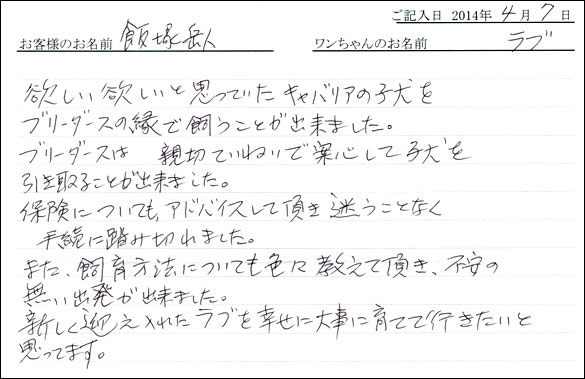 ご記入日 2014年 4月 7日
お客様のお名前 飯塚岳人 ワンちゃんのお名前 ラブ
欲しい欲しいと思っていたキャバリアの子犬を
ブリーダースの縁で飼うことが出来ました。
ブリーダースは 親切ていねいで安心して子犬を
引き取ることが出来ました。
保険についても、アドバイスして頂き迷うことなく
手続に踏み切れました。
また、飼育方法についても色々教えて頂き、不安の
無い出発が出来ました。
新しく迎え入れたラブを幸せに大事に育てて行きたいと
思ってます。